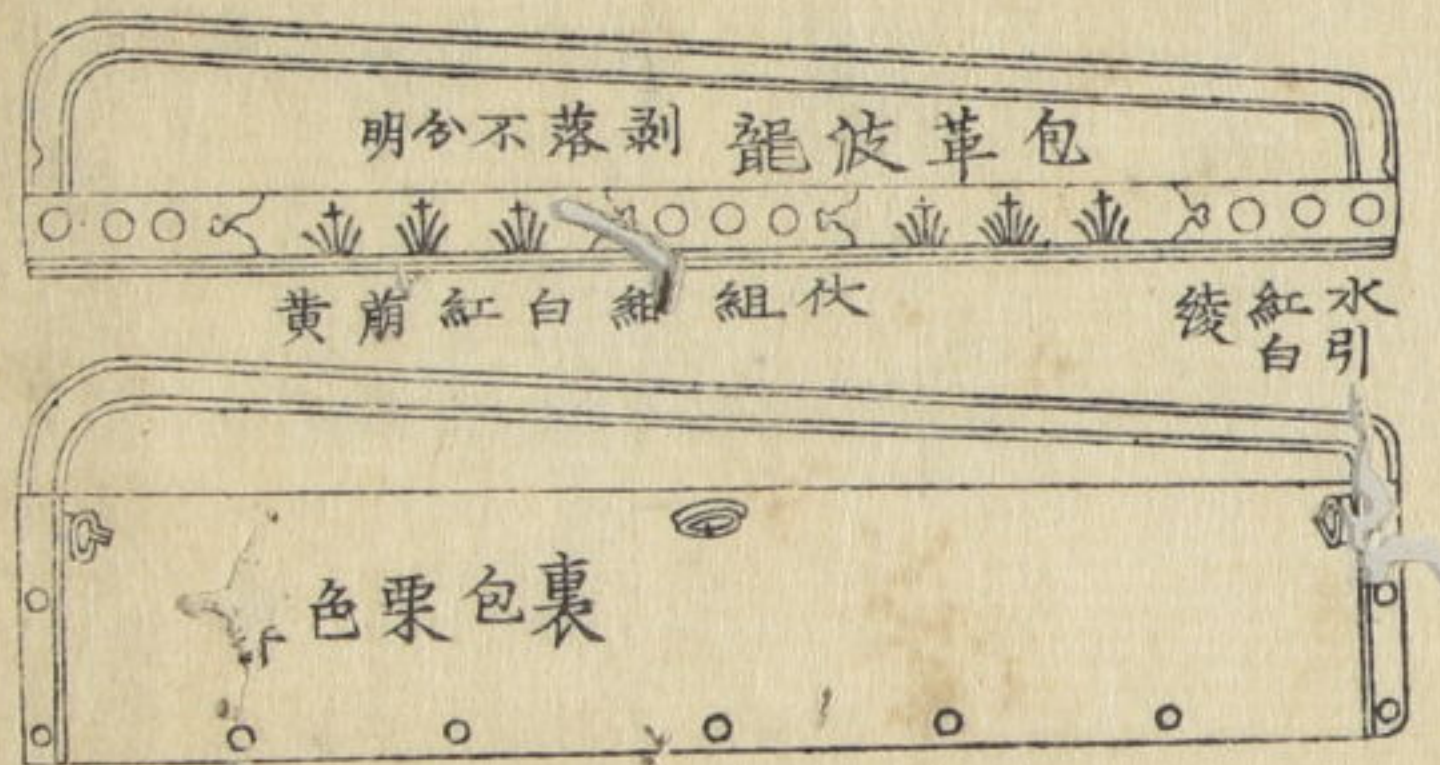 包革波龍 剥落不分明
水引
紅白
綾
伏組 紺白紅萠黄
裏包栗色